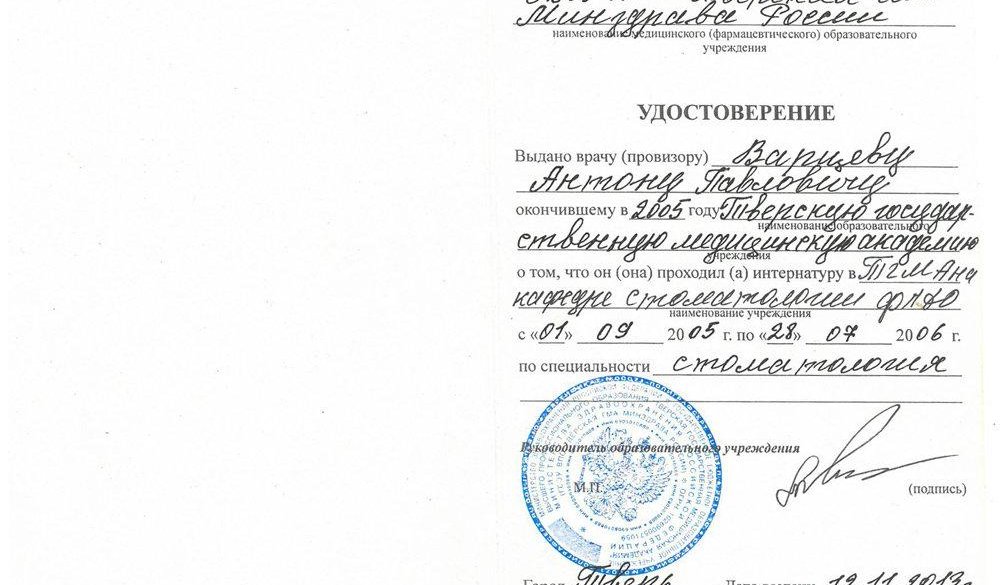 Минздрава России
наименование медицинского (фармацевтического) образовательного
учреждения
УДОСТОВЕРЕНИЕ
Выдано врачу (провизору) Варцеву
Антону Павловичу
окончившему в 2005 году Тверскую государ-
наименование образовательного
ственную медицинскую академию
учреждения
о том, что он (она) проходил (а) интернатуру в ТГМА на
кафедре стоматологии ФПДО
наименование учреждения
с «01» 09 2005 г. по «28» 07 2006 г.
по специальности стоматология
Руководитель образовательного учреждения
М.П.
(подпись)
Город Тверь Дата выдачи 12.11.2013г.